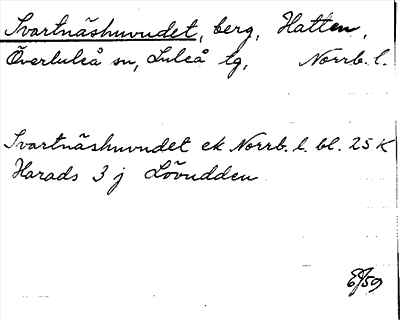 Svartnäshuvudet, berg, Hatten,
Överluleå sn, Luleå tg, Norrb. l.
Svartnäshuvudet ek Norrb. l. bl. 25 K
Harads 3 j Lövudden